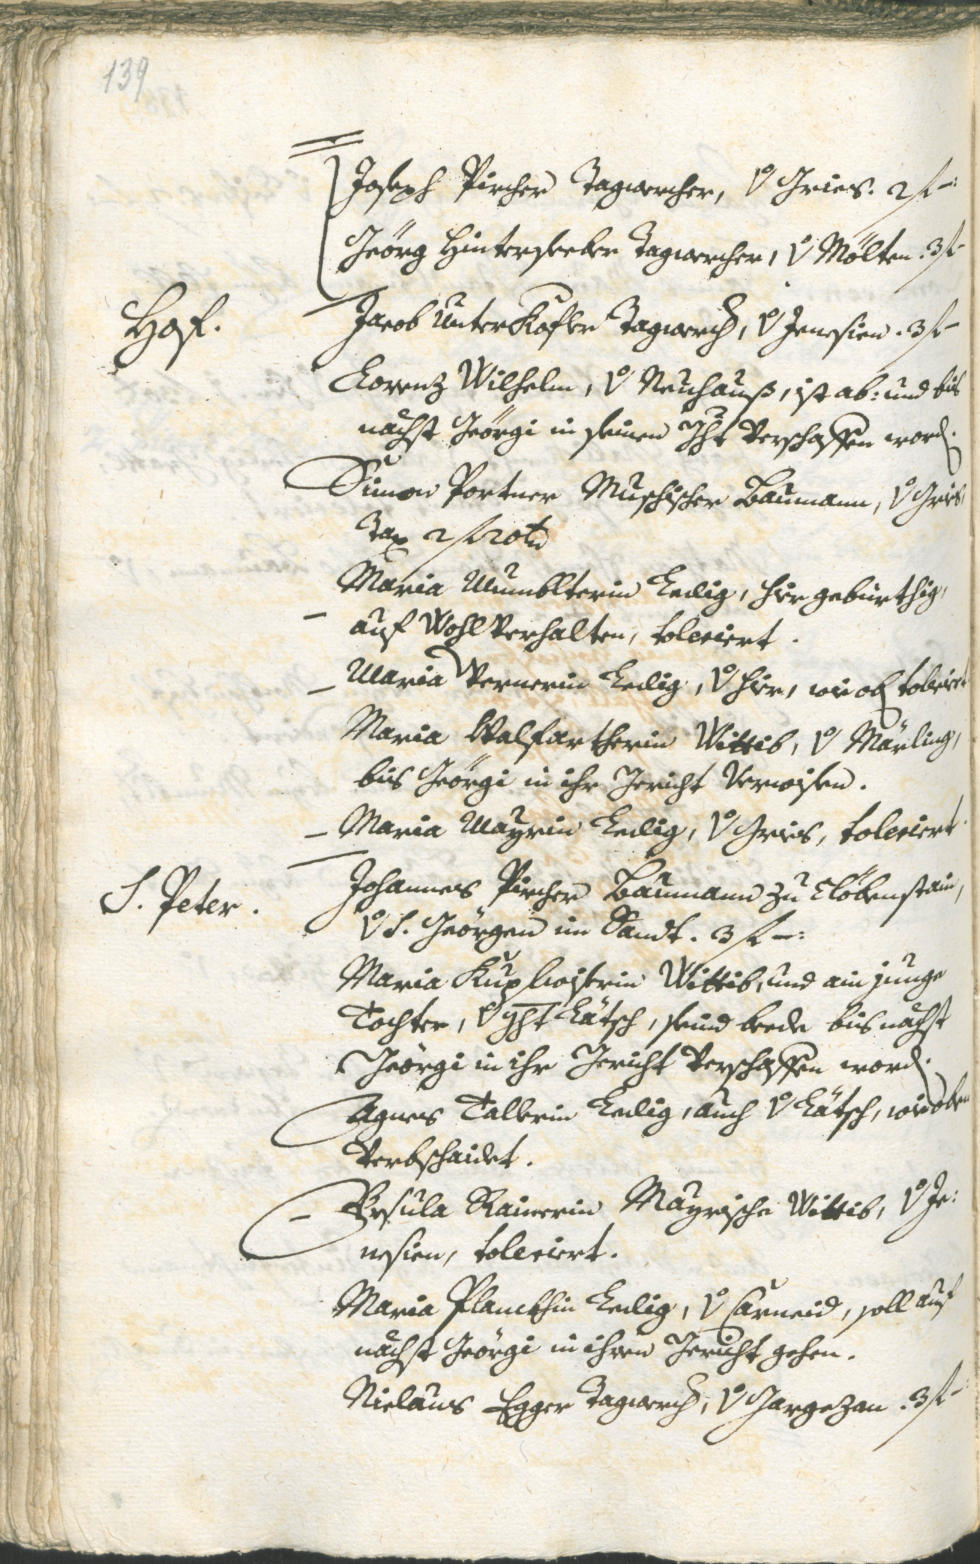 139
Joseph Pircher Tagwercher, V Gries. 2 f –:
Geörg Hinterseeber Tagwercher, V Mölten. 3 f –
Hof.
Jacob Unterkofler Tagwerch, V Jenesien. 3 f –
Lorenz Wilhelm, V Neuhauß, ist ab: und bis
nächst Geörgi in seinen Ght verschaffen word.
Simon Portner Baumann, V Gries
Tax 2 f 20
Maria ledig, hier gebürthig,
auf Wohlverhalten, toleriert.
Maria Pernerin ledig, V hier, wie ob toleriert
Maria Walfartherin Wittib, V Märling,
bis Geörgi in ihr Gericht verwisen.
Maria Mayrin ledig, V Gries, toleriert.
S. Peter.
Johannes Pircher Baumann zu Clobenstain,
V S. Geörgen im Sandt. 3 f –:
Maria Wittib, und ain junge
Tochter, V Ght Lätsch, seind beede bis nächst
Geörgi in ihr Gericht verschaffen word.
Agnes Talerin ledig, auch V Lätsch, wie oben
verbschaidet.
Ursula Rainerin Mayrische Wittib, V Je:
nesien, toleriert.
Maria Planckhin ledig, V Carneid, soll auf
nächst Geörgi in ihren Gericht gehen.
Niclaus Egger Tagwerch, V Gargazan. 3 f –